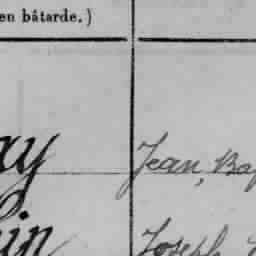 en bâtarde.)
ay Jean, Bap
in Joseph